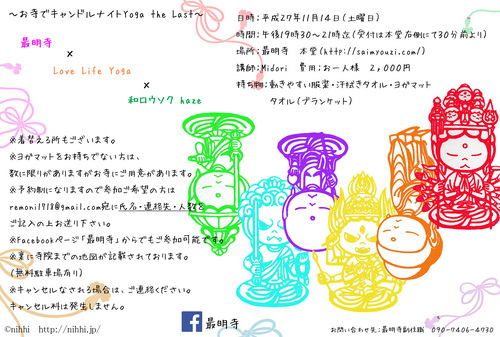 ～お寺でキャンドルナイトYoga the Last～
最明寺
x
Love Life Yoga
x
和ロウソク haze
日時：平成27年11月14日（土曜日）
時間：午後19時30～21時迄（受付は本堂右側にて30分前より）
場所：最明寺　本堂（http://saimyouzi.com/）
講師：Midori　費用：お一人様　2,000円
持ち物：動きやすい服装・汗拭きタオル・ヨガマット
タオル（ブランケット）
※着替える所もございます。
※ヨガマットをお持ちでない方は、
数に限りがありますがお寺にご用意があります。
※予約制になりますので参加ご希望の方は
remoni1718@gmail.com宛に氏名・連絡先・人数を
ご記入の上お送り下さい。
※Facebookページ「最明寺」からでもご参加可能です。
※裏に寺院までの地図が記載されております。
（無料駐車場有り）
※キャンセルなされる場合は、ご連絡ください。
キャンセル料は発生しません。
f 最明寺
©nihhi　http://nihhi.jp/
お問い合わせ先：最明寺副住職　090-9406-4930